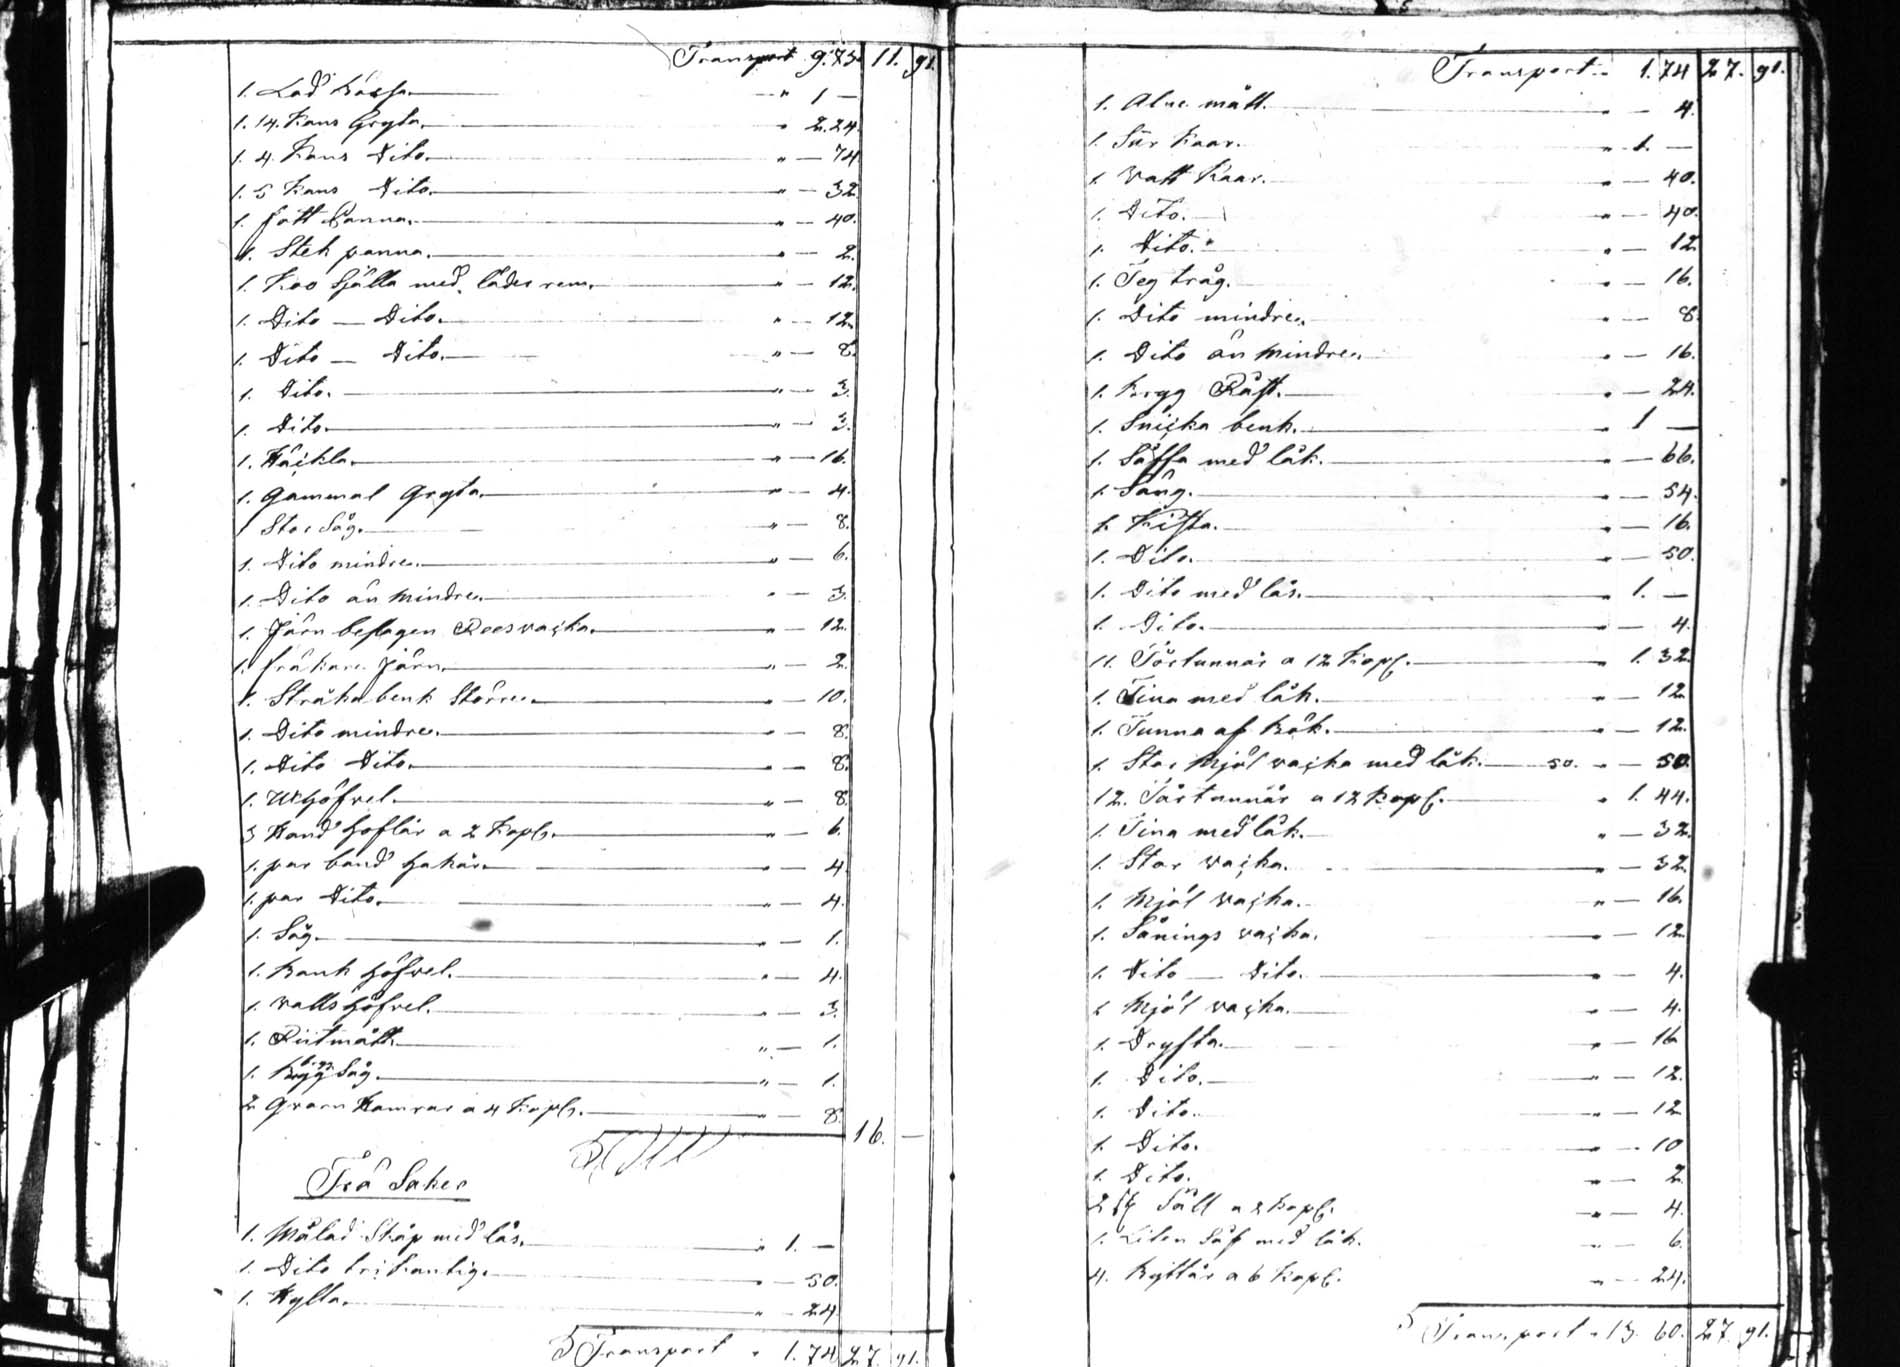 Transport 9.75. 11. 91.
1. Lod " 1 —
1. 14. Kans Gryta. " 2.24.
1. 4. Kans Dito. " — 74
1. 5 Kans Dito. " — 32
1. fatt Panna. " — 40.
1. Stek panna. " — 2.
1. Koo Själla med läder rem. " — 12.
1. Dito — Dito. " — 12.
1. Dito — Dito. " — 8.
1. Dito. " — 3.
1. Dito. " — 3.
1. Häckla. " — 16.
1. Gammal Gryta. " — 4.
1 Stor Såg. " — 8.
1. Dito mindre. " — 6.
1. Dito än mindre. " — 3.
1. Järn beslagen Reesvacka. " — 12.
1. Järn. " — 2.
1. Stråka benk Större. " — 10.
1. Dito mindre. " — 8.
1. Dito Dito. " — 8.
1. höfvel. " — 8.
3 Hand höflar a 2 Kopl. " — 6.
1. par band hakar. " — 4.
1. par Dito. " — 4.
1. Såg. " — 1.
1. Bank höfvel. " — 4.
1. valls höfvel. " — 3.
1. Ritmått. " — 1.
1. Såg. " — 1.
2 Qvarn Hamrar a 4 Kopl. " — 8.
16. —
Trä Saker
1. Målad Skåp med lås. " 1. —
1. Dito trikantig. " — 50.
1. Hylla. " — 24
Transport " 1.74 27. 91.
Transport " 1.74 27. 91.
1. Alne mått. — 4.
1. Sur Kaar. " 1. —
1. Vatt Kaar. " — 40.
1. Dito. " — 40.
1. Dito. " — 12
1. Deg tråg. " — 16.
1. Dito mindre. " — 8.
1. Dito än mindre. " — 16.
1. Brygg Råst. " — 24.
1. Snicka benk. " 1 —
1. Såffa med låk. " — 66.
1. Säng. " — 54.
1. Kista. " — 16.
1. Dito. " — 50.
1. Dito med lås. " 1. —
1. Dito. " — 4.
11. Törtunnar a 12 Kopl. " 1. 32.
1. Tina med låk. " — 12
1. Tunna af Bök. " — 12.
1. Stor Mjöl vacka med låk. 50. " — 50.
12. Törtunnar a 12 Kopl. " 1. 44.
1. Tina med låk. " — 32.
1. Stor vacka. " — 32.
1. Mjöl vacka. " — 16.
1. Sånings vacka. " — 12.
1. Dito — Dito. " — 4.
1 Mjöl vacka. " — 4.
1. Dryfta. " — 16
1. Dito. " — 12.
1. Dito. " — 12
1. Dito. " — 10
1. Dito. " — 2
2 st Såll a 2 Kopl. " — 4.
1. Liten Såf med låk. " — 6.
4. Byttar a 6 Kopl. " — 24.
Transport " 13. 60. 27. 91.